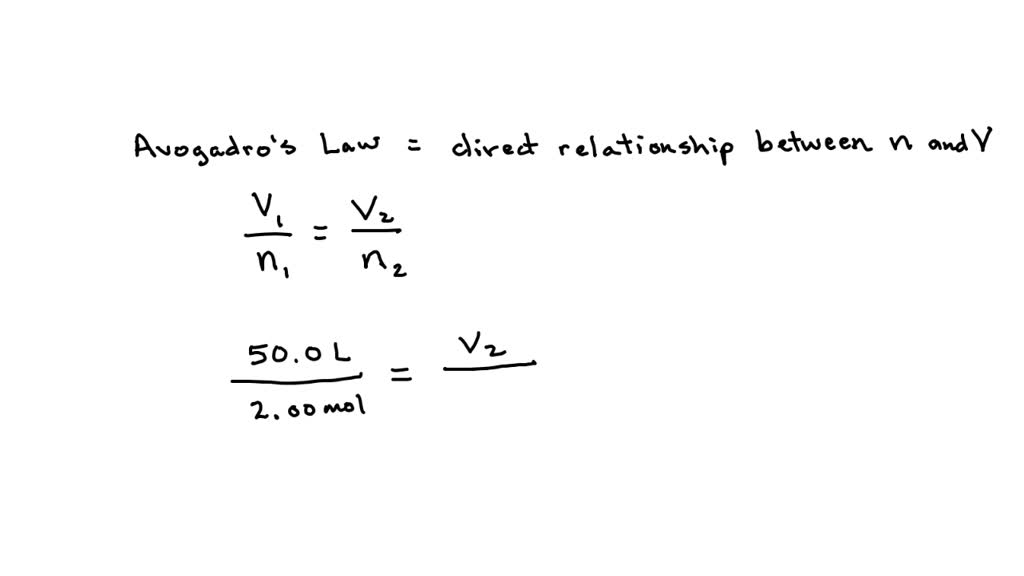 Avogadro's Law = direct relationship between n and V
V₁ = V₂
n₁ n₂
50.0 L = V₂
2.00 mol